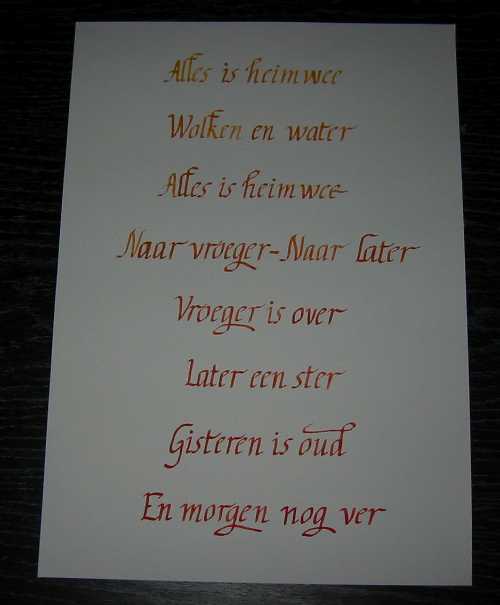 Alles is heimwee
Wolken en water
Alles is heimwee
Naar vroeger-Naar later
Vroeger is over
Later een ster
Gisteren is oud
En morgen nog ver